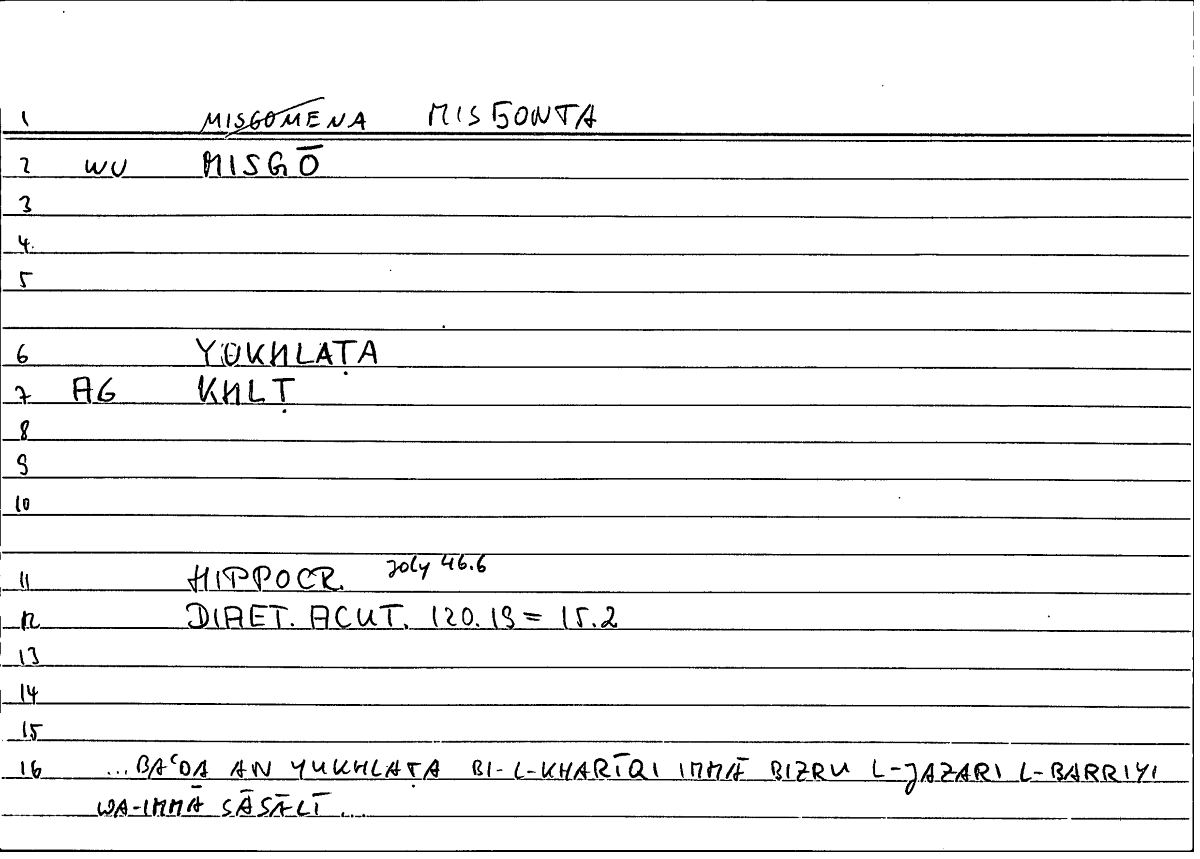 1 MISGOMENA MISGONTA
2 WU MISGŌ
3
4.
5
6 YUKHLAṬA
7 AG KHLṬ
8
9
10
11 HIPPOCR. Joly 46.6
12 DIAET. ACUT. 120.19 = 15.2
13
14
15
16 ...BAʿDA AN YUKHLAṬA BI-L-KHARĪQI IMMĀ BIZRU L-JAZARI L-BARRIYI
WA-IMMĀ SĀSĀLĪ...